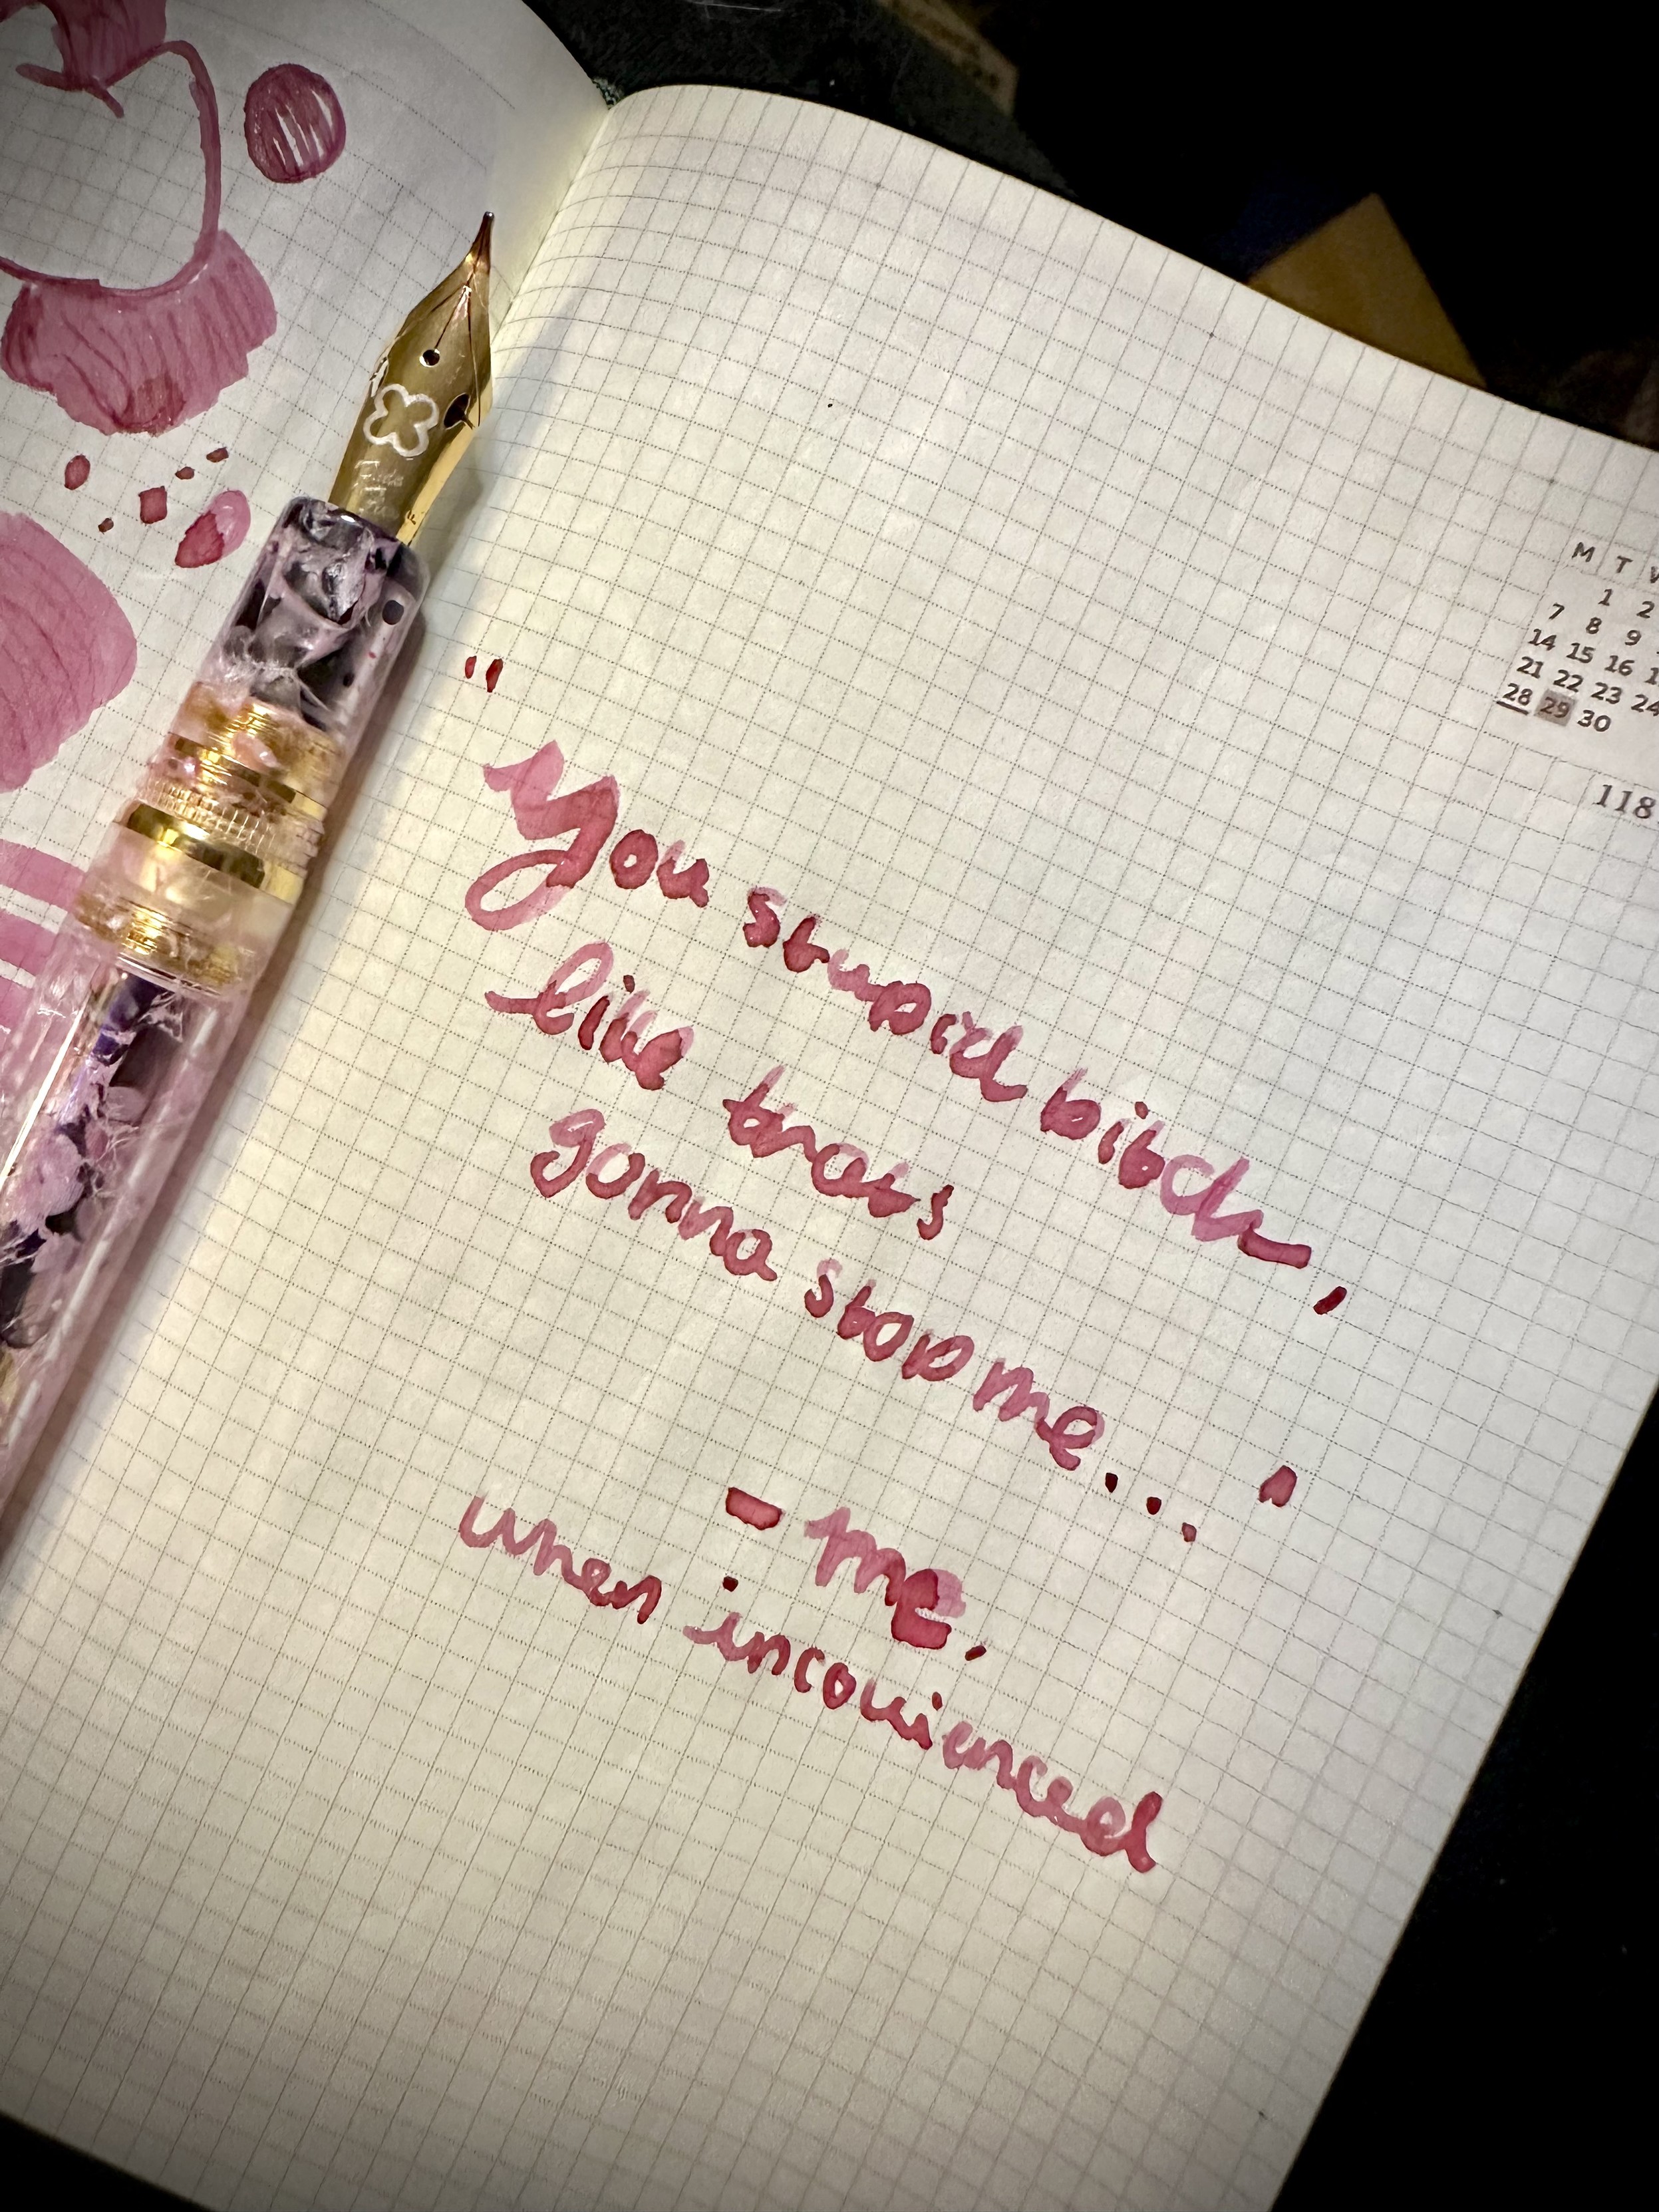 M T
1 2
7 8 9
14 15 16
21 22 23 24
28 29 30
118
"
You stupid bitch,
like thats
gonna stop me... '
- me,
when inconvienced